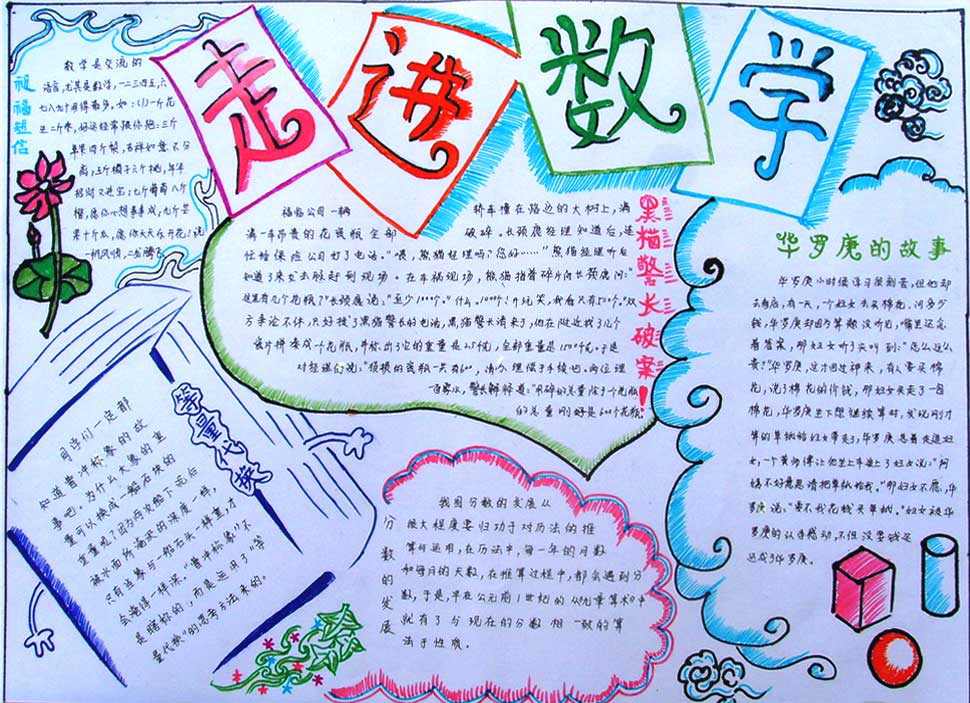 走进数学
祝福短信
数学是交流的
语言,尤其是数字,一二三四五,六
七八九十用得最多,如:(1)一斤花
生二斤枣,好运经常跟你跑;三斤
苹果四斤梨,吉祥如意不分
离;五斤橘子六斤桃,年年
招财又进宝;七斤葡萄八斤
橙,愿你心想事成;九斤芒
果十斤瓜,愿你天天乐开花!
一帆风顺,二龙腾飞
黑猫警长破案!
福临公司一辆
满一车昂贵的花瓷瓶全部
忙给保险公司打了电话。"喂,熊猫经理吗?您好……"熊猫经理听后
知道了来龙去脉赶到现场。在车祸现场,熊猫指着碎片问长颈鹿问:
这里有几个花瓶?"长颈鹿说:"至少1000个。"什么,1000个!开玩笑,我看只有50个。"双
方争论不休,只好找了黑猫警长的电话,黑猫警长请来了,他在附近找了几个
轿车撞在路边的大树上,满
破碎。长颈鹿经理知道后,连
碎片拼凑成一个花瓶,并称出了它的重量是2.5千克,全部重量是1500千克。于是
对经理们说:"破损的瓷瓶一共有600
警长解释道:用碎的总重除于一个花瓶
的总重刚好是600个花瓶。
华罗庚的故事
华罗庚小时候学习很刻苦,但他却
去看店,有一天,一个妇女去买棉花,问多少
钱,华罗庚却因为算题没听见,嘴里还念
着答案,那妇女听了尖叫到:"怎么这么
贵?"华罗庚,这才回过神来,有人要买棉
花,说了棉花的价钱,那妇女买走了一包
棉花,华罗庚坐下想继续算时,发现刚才
算的草纸给妇女带走了,华罗庚急着去追妇
女,一个黄包車让他坐上车追上了妇女说:"阿
姨不好意思请把草纸给我。"那妇女不愿,华
罗庚说:"要不我花钱买草纸。"妇女被华
罗庚的认真感动,不但没要钱还
送成了华罗庚。
等量代换
同学们一定都
知道曹冲称象的故
事吧,为什么大象的重
量可以换成一船石块的
重量呢?因为两次船下沉后
被水面所淹没的深度一样,
只有当象与一船石头一样重,才
会淹得一样深。"曹冲称象"不
是瞎称的,而是运用了"等
量代换"的思考方法来的。
分数的发展
我国分数的发展从
很大程度要归功于对历法的推
算和运用,在历法中,每一年的月数
和每月的天数,在推算过程中,都会遇到分
数,于是,早在公元前1世纪的《九章算术》中
就有了与现在的分数相一致的算
法于性质。